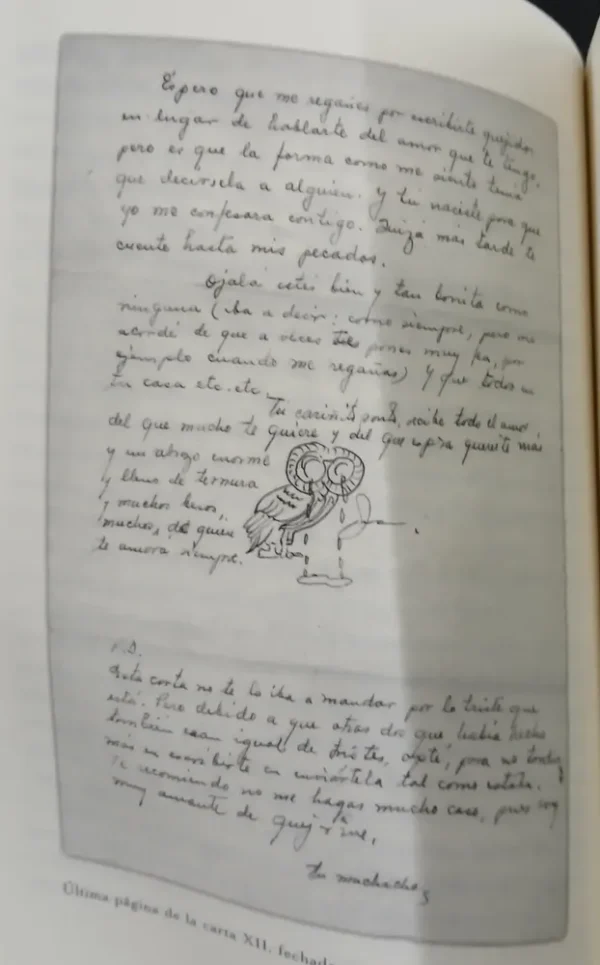 Espero que me regañes por escribirte quejidos
en lugar de hablarte del amor que te tengo,
pero es que la forma como me siento tenía
que decírsela a alguien. Y tú naciste para que
yo me confesara contigo. Quizá más tarde te
cuente hasta mis pecados.
Ojalá estés bien y tan bonita como
ninguna (iba a decir: como siempre, pero me
acordé de que a veces te pones muy fea, por
ejemplo cuando me regañas) y que todos en
tu casa etc. etc.
Tu cariñito santo, recibe todo el amor
del que mucho te quiere y del que espera quererte más
y un abrazo enorme
y lleno de ternura
y muchos besos,
muchos, de quien
te amara siempre.
Juan.
P.D.
Esta carta no te la iba a mandar por lo triste que
está. Pero debido a que otras dos que había hecho
también eran igual de tristes, opté, para no tardar
más en escribirte en enviártela tal como estaba.
Te recomiendo no me hagas mucho caso, pues soy
muy amante de quejarme,
tu muchacho
Última página de la carta XII, fechada